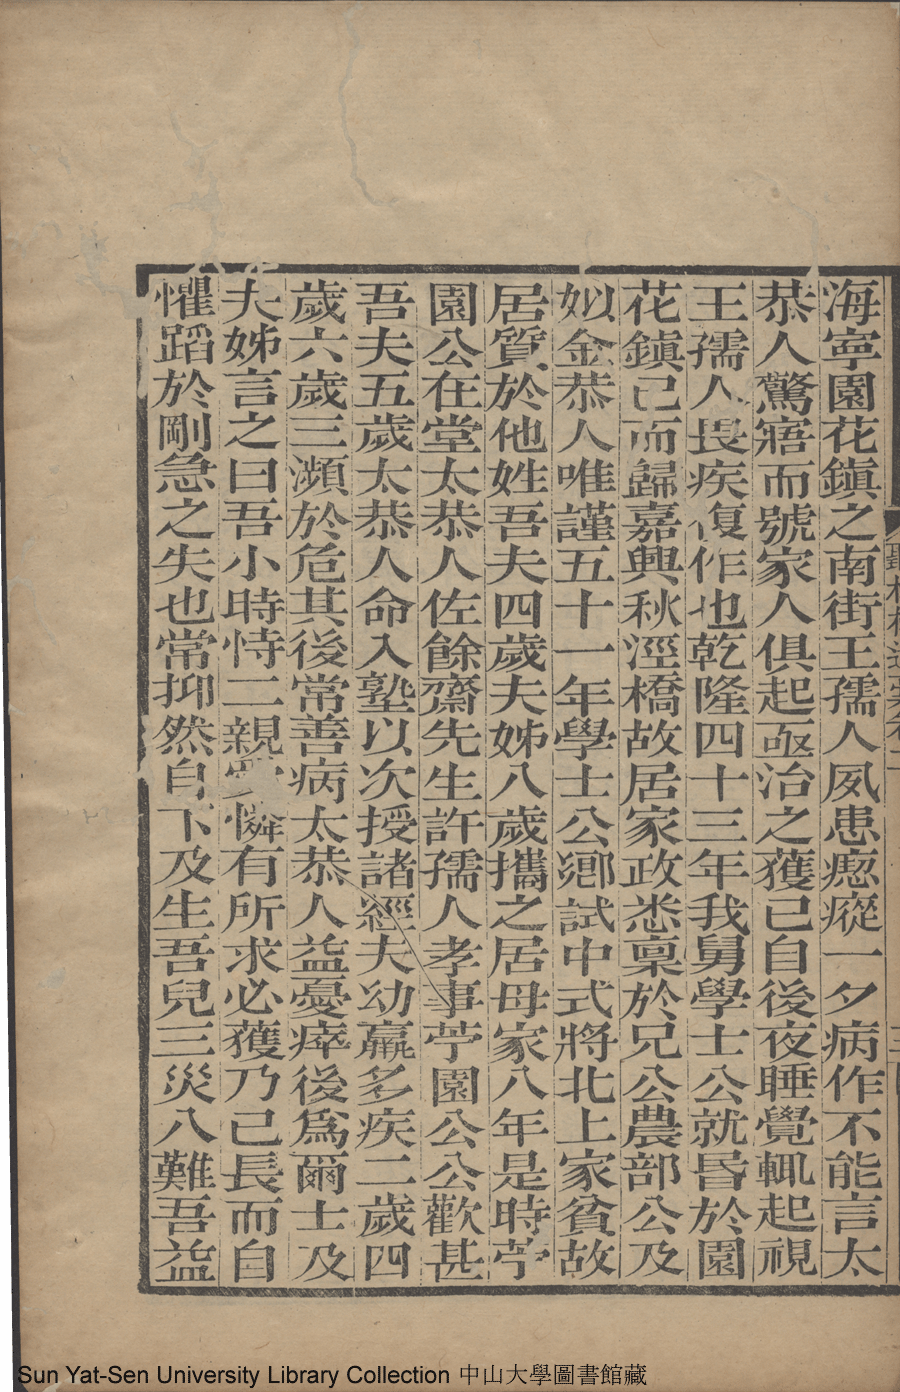 海寧園花鎭之南街王孺人夙患瘛瘲一夕病作不能言太
恭人驚寤而號家人俱起亟治之獲已自後夜睡覺輒起視
王孺人畏疾復作也乾隆四十三年我舅學士公就昏於園
花鎭已而歸嘉興秋涇橋故居家政悉稟於兄公農部公及
姒金恭人唯謹五十一年學士公鄉試中式將北上家貧故
居質於他姓吾夫四歲夫姊八歲攜之居母家八年是時苧
園公在堂太恭人佐餘齋先生許孺人孝事苧園公公歡甚
吾夫五歲太恭人命入塾以次授諸經夫幼羸多疾二歲四
歲六歲三瀕於危其後常善病太恭人益憂瘁後爲爾士及
夫姊言之曰吾小時恃二親愛憐有所求必獲乃已長而自
懼蹈於剛急之失也常抑然自下及生吾兒三災八難吾益
Sun Yat-Sen University Library Collection 中山大學圖書館藏